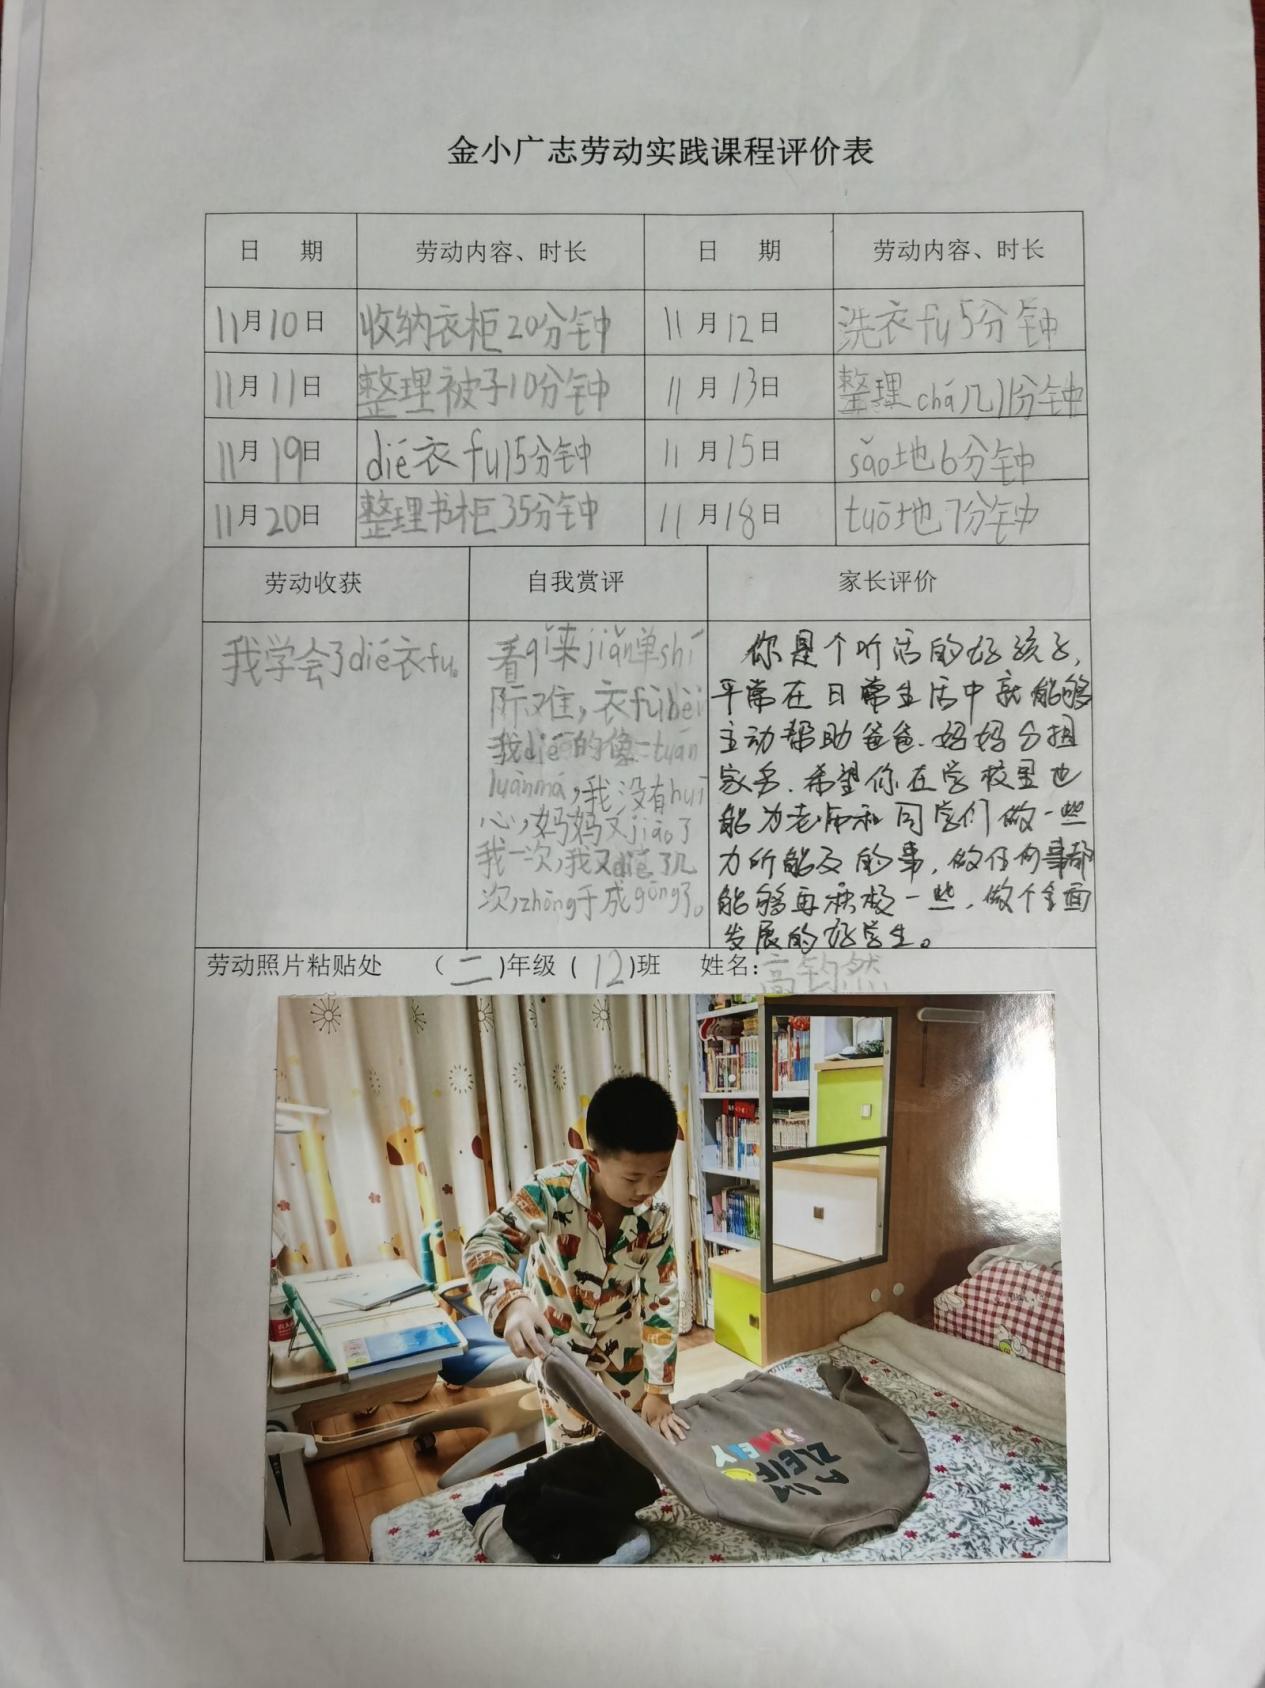 金小广志劳动实践课程评价表
日 期 劳动内容、时长 日 期 劳动内容、时长
11月10日 收纳衣柜20分钟 11月12日 洗衣fu5分钟
11月11日 整理被子10分钟 11月13日 整理chá几11分钟
11月19日 dié衣fu15分钟 11月15日 sǎo地6分钟
11月20日 整理书柜35分钟 11月18日 tuō地7分钟
劳动收获 自我赏评 家长评价
我学会了dié衣fu。
看qǐ来jiǎn单shí
际难，衣fúbèi
我dié的像一tuán
luànmá，我没有huī
心，妈妈又jiāo了
我一次，我又dié了几
次，zhōng于成gōng了。
你是个听话的好孩子，
平常在日常生活中就能够
主动帮助爸爸、妈妈分担
家务，希望你在学校里也
能为老师和同学们做一些
力所能及的事，做任何事都
能够再积极一些，做个全面
发展的好学生。
劳动照片粘贴处 （二）年级（12）班 姓名：高钧然